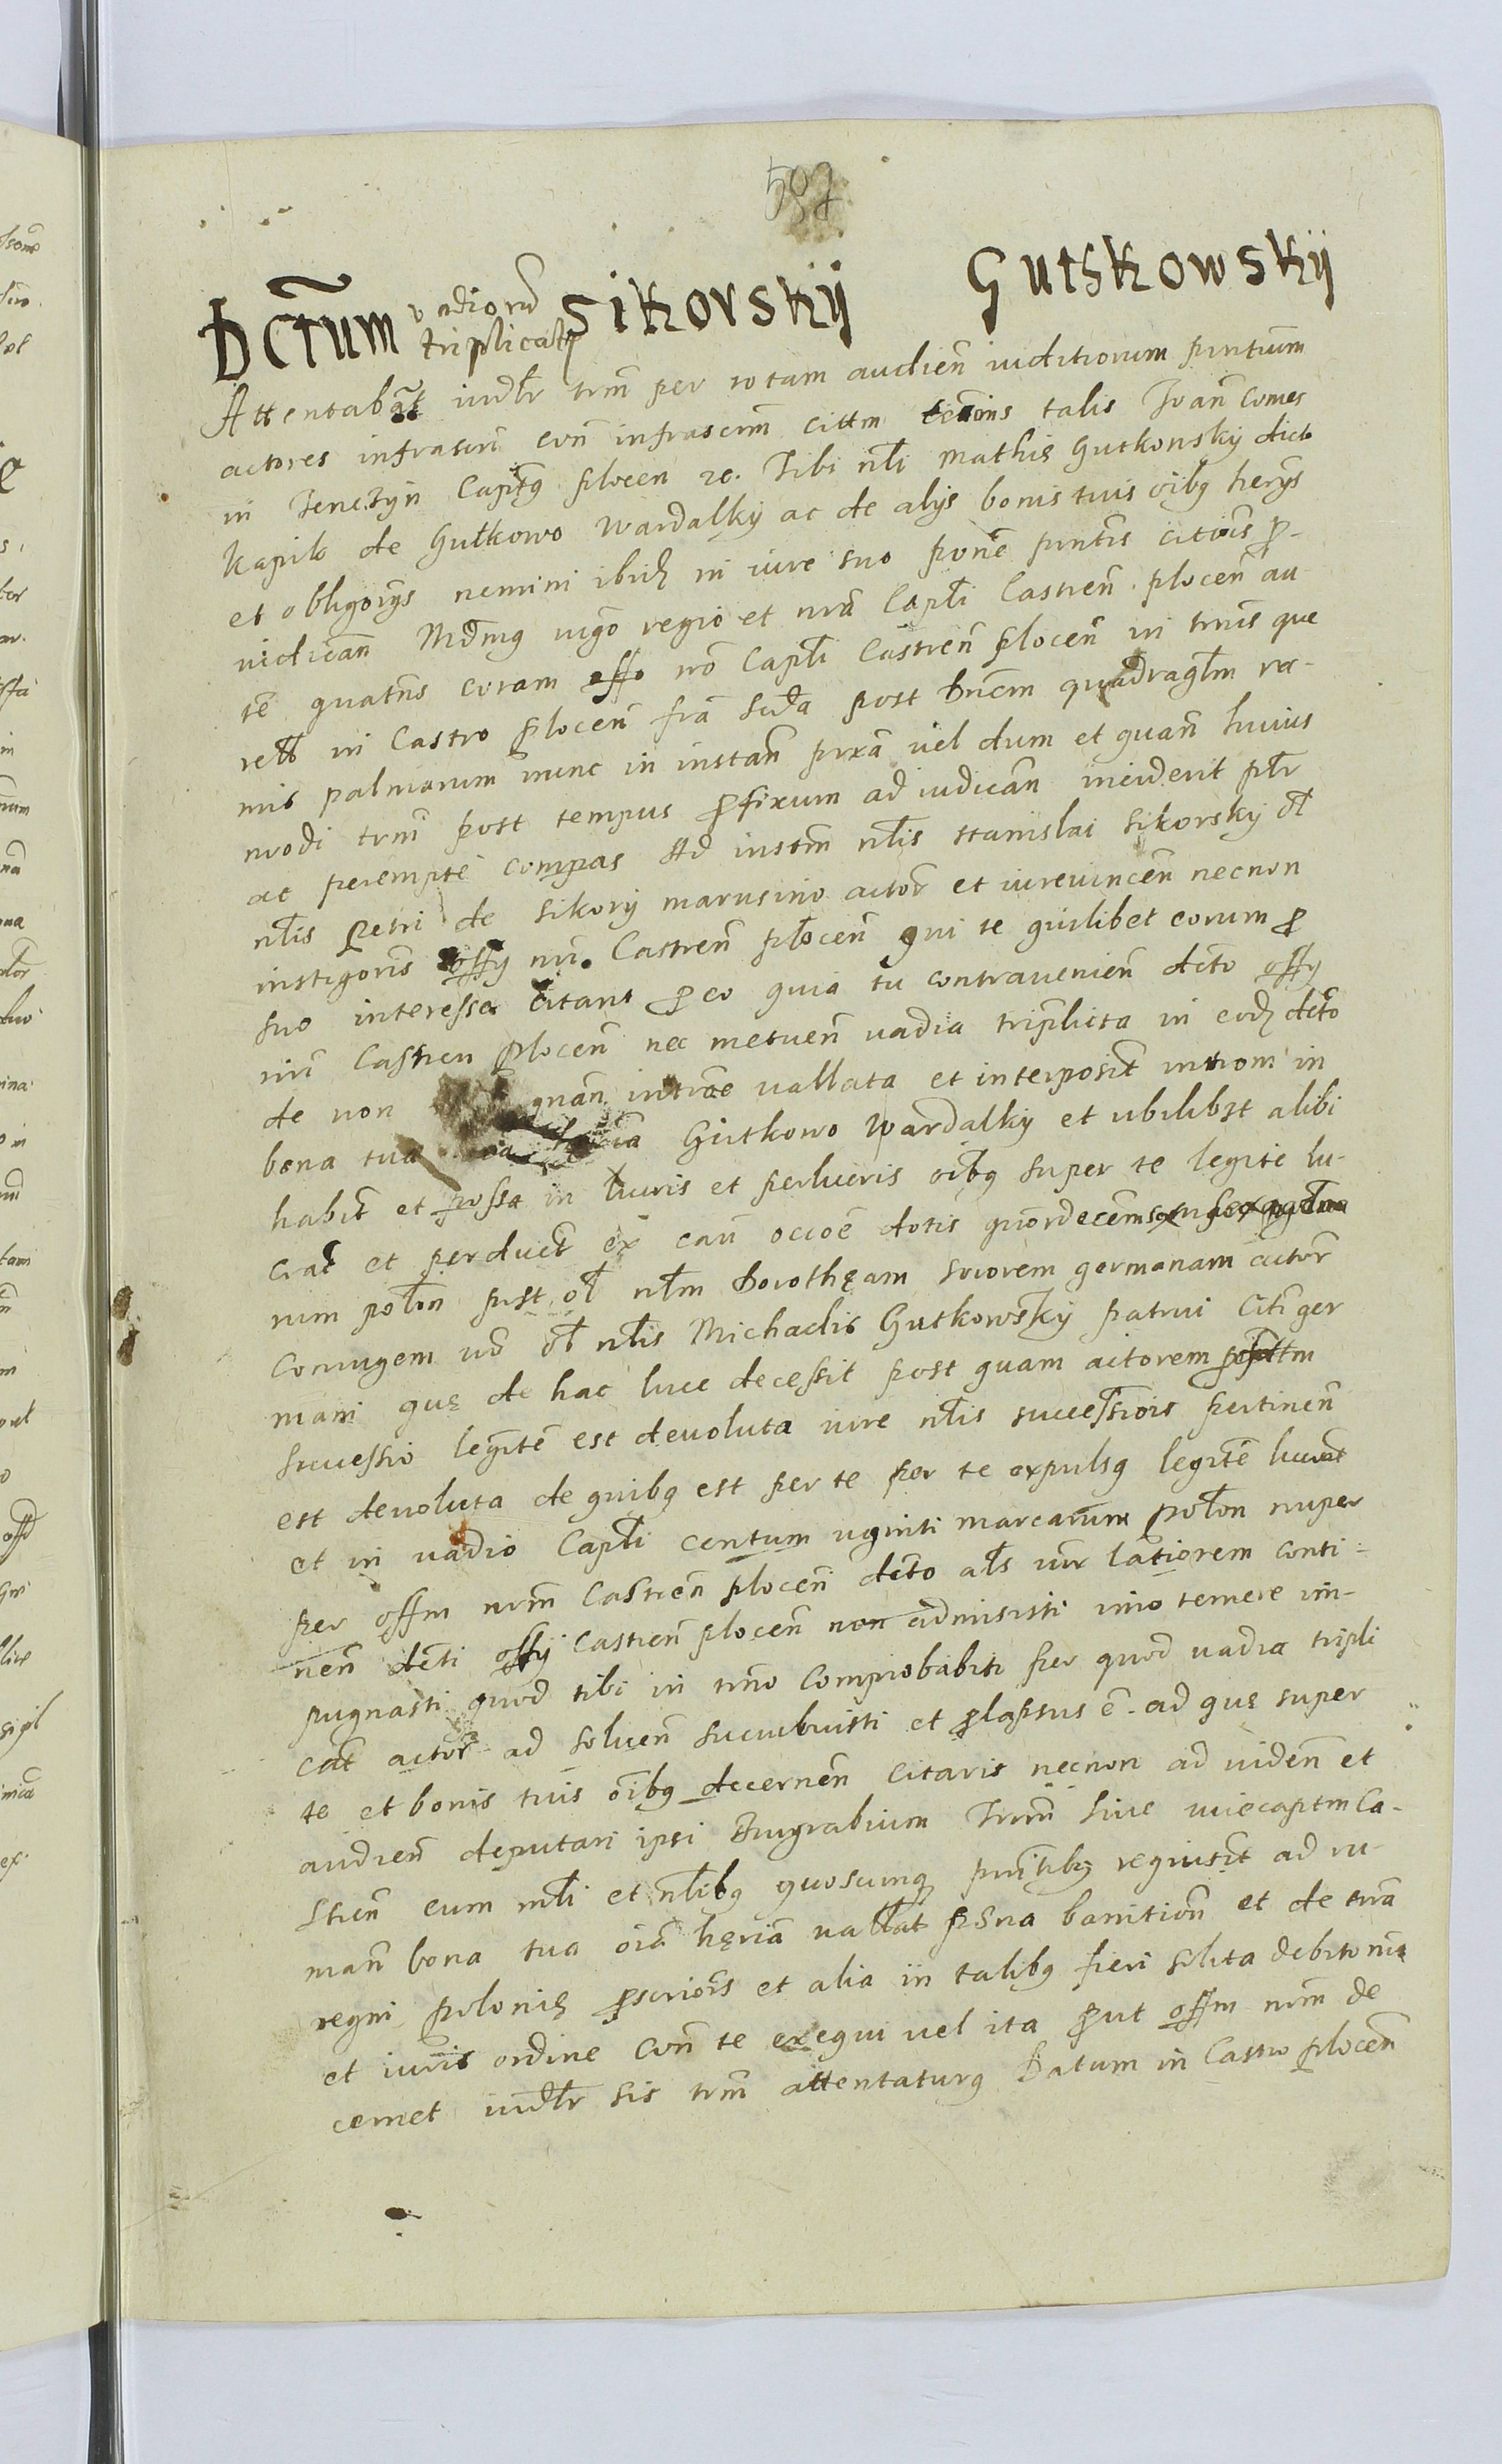 587
Dctum vadiorũ triplicatę Sikorskÿ Gutskowskÿ
Attentabãt iudłr trm̃ per totam audien̄ iuditiorum pn̄tium
actores infrascri con̄ infrascrm̃ cittm tenoris talis Joan̄ Comes
in Tenczyn Captg plocen̄ rc. Tibi nłi Mathię Gutkonsky dicto
Kapik de Gutkowo Wardalky ac de alys bonis tuis oībg herys
et obligorys nemini ibidȝ in iure suo pōnē pn̄tis citōis p-
iudican̄ Mdmg vigo regio et nr̄a Capłi Castren̄ plocen̄ au
tē quatn̄s coram offo nr̄o Capłi Castren̄ plocen̄ in tmīs que
rełł in Castro plocen̄ fra Scda post Dn̄cm quadragłm ra-
mis palmarum nunc in instan̄ pxa vel dum et quan̄ huius
modi trm̃ post tempus pfixum ad iudican̄ inciderit płr
ac perempte compas Ad instm̃ nłis Stanislai Sikorsky ół
nłis Petri de Sikory marusino actor et iurevincen̄ necnon
instigoris offy nri. Castren̄ płocen̄ qui te quilibet eorum p
suo interesse citant p eo quia tu contravenien̄ dcto offy
nr̄i Castren̄ plocen̄ nec metuen̄ vadia triplicta in eodȝ dcto
de non gnan̄ intrōe vallata et interposit intrōm in
bona tua Gutkowo Wardalky et ubilibet alibi
habit et possa in lucris et perlucris oībg super te legite lu-
crat et perduct ex caū occōē dotis quordecem
rum połon post ół nłm Dorotheam sororem germanam actor
coniugem vo ół nłis Michaelis Gutkowsky patrui Citi ger
mani quę de hac luce decessit post quam actorem
successio legitē est devoluta iure nłis successiōis pertinen̄
est devoluta de quibg est per te per te expulsg legitē lucrat
et in vadio Capłi centum viginti marcarum połon nuper
per offm nrm̃ Castren̄ plocen̄ dcto ałs vir latiorem conti-
nen̄ dcti offÿ castren̄ plocen̄ non admisisti imo temere im-
pugnasti quod tibi in tmno comprobabiti per quod vadia tripli
cat actor ad solven̄ succubuisti et plapsus ē. ad quę super
te et bonis tuis oībg decernen̄ citaris necnon ad viden̄ et
audien̄ deputari ipsi Burgrabium Trm̃ sive vicecaptm Ca-
stren̄ cum młi et nłibg quoscunq pn̄tibg requisit ad ru-
man̄ bona tua oia hęria vallat pena bannition̄ et de tr̄ra
regni polonię pscriōis et alia in talibg fieri solita debito mō
et iuris ordine con̄ te exequi vel ita put offm nrm̃ de
cernet iudłr sis trm̃ attentaturg Datum in Castro plocen̄